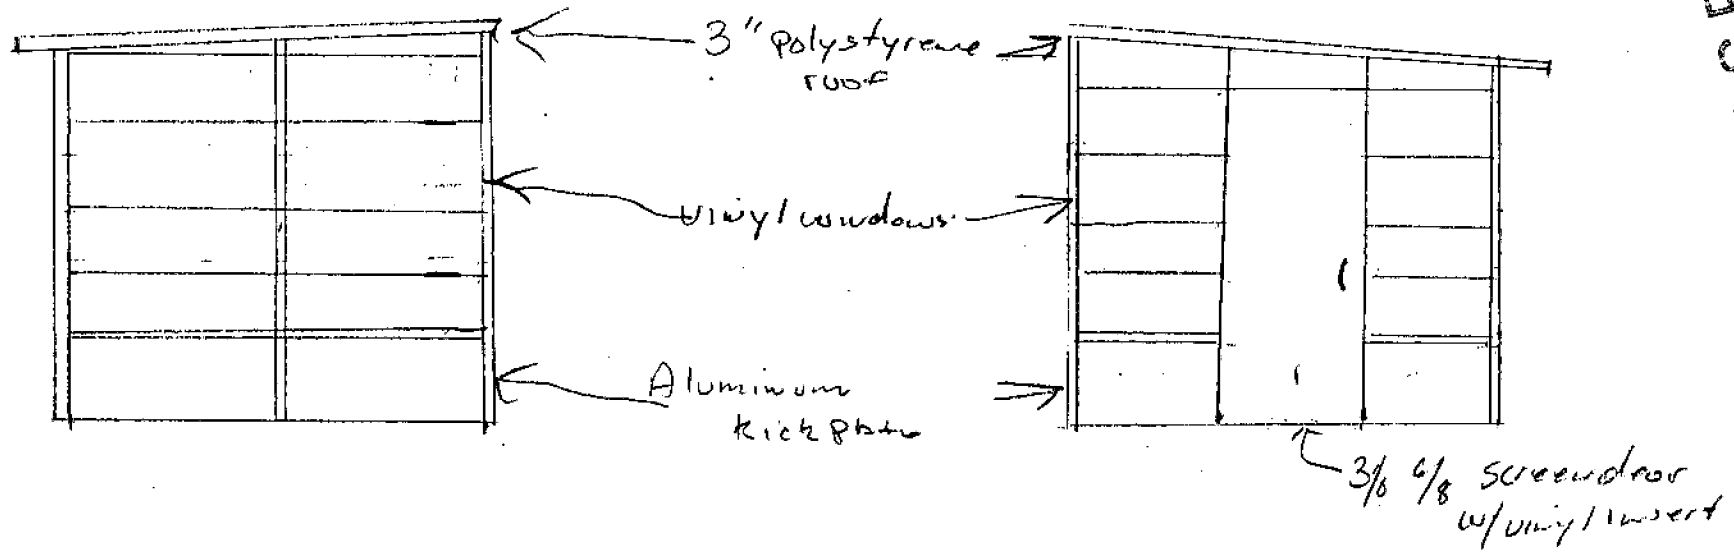 3" polystyrene
roof
vinyl windows
Aluminum
kick plate
3/0 6/8 screendoor
w/ vinyl insert